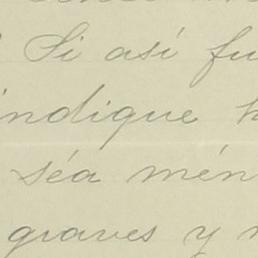 Si así fu
indique
séa mén
graves y